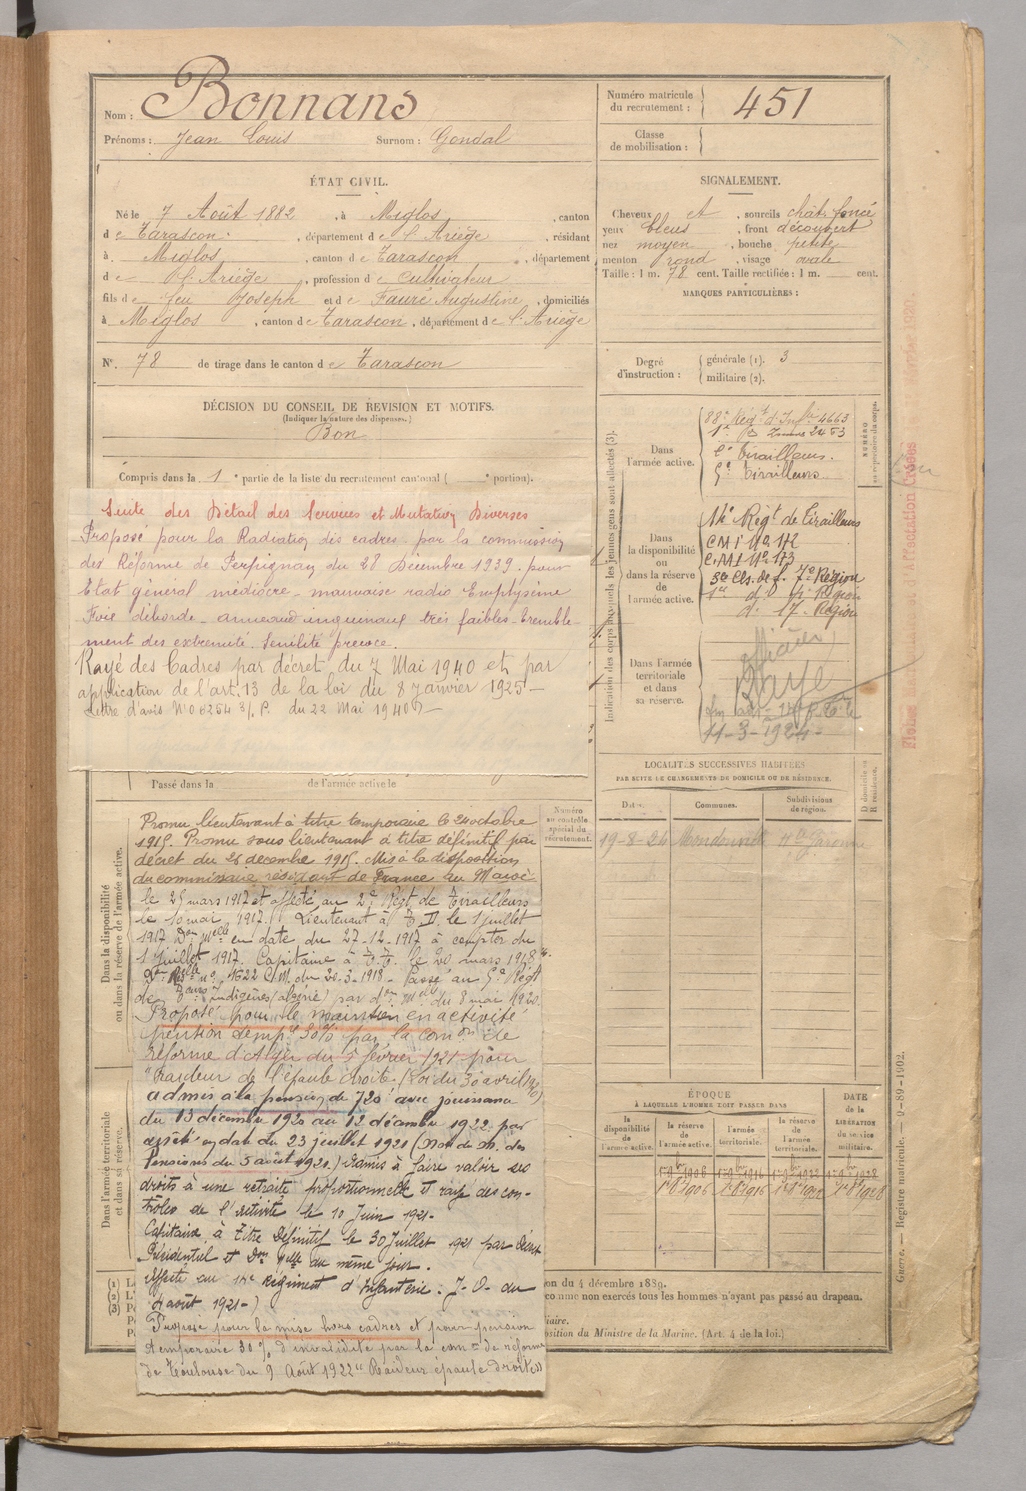 Nom : Bonnans
Prénoms : Jean Louis Surnom : Gondal
Numéro matricule du recrutement : 451
Classe de mobilisation :
ÉTAT CIVIL.
Né le 7 Août 1882, à Miglos, canton
de Tarascon, département de l'Ariège, résidant
à Miglos, canton de Tarascon, département
de l'Ariège, profession de Cultivateur
fils de feu Joseph et de Faure Augustine, domiciliés
à Miglos, canton de Tarascon, département de l'Ariège
N° 78 de tirage dans le canton de Tarascon
DÉCISION DU CONSEIL DE REVISION ET MOTIFS.
(Indiquer la nature des dispenses.)
Bon
Compris dans la 1e partie de la liste du recrutement cantonal ( e portion).
SIGNALEMENT.
Cheveux et, sourcils chât. foncé
yeux bleus, front découvert
nez moyen, bouche petite
menton rond, visage ovale
Taille : 1 m. 78 cent. Taille rectifiée : 1 m. cent.
MARQUES PARTICULIÈRES :
Degré d'instruction : générale (1). 3
militaire (2).
Indication des corps auxquels les jeunes gens sont affectés (3).
Dans l'armée active.
88e Régt d'Infie 4663
Zouaves 2453
2e Tirailleurs.
5e Tirailleurs
NUMÉRO au répertoire du corps.
Dans la disponibilité ou dans la réserve de l'armée active.
14e Régt de Tirailleurs
CMI No 172
CMI No 173
17e Région
Dans l'armée territoriale et dans sa réserve.
officier
Rayé
11-3-1924-
LOCALITÉS SUCCESSIVES HABITÉES
PAR SUITE DE CHANGEMENTS DE DOMICILE OU DE RÉSIDENCE.
Dates. Communes. Subdivisions de région. D domicile ou R résidence.
19-8-26 Mondonville Hte Garonne
Suite des Détail des Services et Mutation Diverses
Proposé pour la Radiation des cadres par la commission
de Réforme de Perpignan du 28 Décembre 1939. pour
Etat général médiocre - mauvaise radio Emphysème
Foie déborde - anneaux inguinaux très faibles - tremble-
ment des extrémité. Senilité précoce.
Rayé des Cadres par décret du 7 Mai 1940 et par
application de l'art. 13 de la loi du 8 Janvier 1925 -
Lettre d'avis No 06254 3/. P. du 22 Mai 1940
Passé dans la de l'armée active le
Numéro au contrôle spécial du recrutement.
Dans la disponibilité ou dans la réserve de l'armée active.
Promu lieutenant à titre temporaire le 24 octobre
1915. Promu sous lieutenant à titre définitif par
décret du 25 decembre 1915. Mis à la disposition
du commissaire résidant de France au Maroc
le 25 mars 1917 et affecté au 2e Régt de Tirailleurs
le 10 mai 1917. Lieutenant à T. D. le 1 juillet
1917 Don Melle en date du 27-12-1917 à compter du
1 juillet 1917. Capitaine à T.T. le 20 mars 1918
1622 C/M. du 20-3-1918 - Passé au 5e Régt
de Tirailleurs indigènes (algérie) par don Melle du 8 mai 1920
Proposé pour le maintien en activité
pention temp.re 30% par la comon de
réforme d'Alger du 5 février 1921 pour
"Raideur de l'épaule droite. (Loi du 30 avril 1920)
admis à la pension de 720f avec jouissance
du 13 décembre 1920 au 12 décembre 1922 par
arrêté en date du 23 juillet 1921 (Not. du M. des
Pensions du 5 août 1921.) Admis à faire valoir ses
droits à une retraite proportionnelle et rayé des con-
trôles de l'activité le 10 Juin 1921-
Capitaine à Titre Définitif le 30 Juillet 1921 par Décret
Présidentiel et Don Melle du même jour.
Affecté au 14e Régiment d'Infanterie. J. O. du
4 août 1921-)
Proposé pour la mise hors cadres et pour pension
temporaire 30% d'invalidité par la comon de réforme
de Toulouse du 9 Août 1922 "Raideur épaule droite"
Dans l'armée territoriale et dans sa réserve.
ÉPOQUE
À LAQUELLE L'HOMME DOIT PASSER DANS
la disponibilité de l'armée active. la réserve de l'armée active. l'armée territoriale. la réserve de l'armée territoriale.
DATE de la LIBÉRATION du service militaire.
1er 9bre 1906 1er 9bre 1916 1er 9bre 1922 1er 9bre 1928
1er 8bre 1906 1er 8bre 1916 1er 8bre 1922 1er 8bre 1928
on du 4 décembre 1889.
comme non exercés tous les hommes n'ayant pas passé au drapeau.
iaire.
osition du Ministre de la Marine. (Art. 4 de la loi.)
Guerre. — Registre matricule. — 9-89-1902.